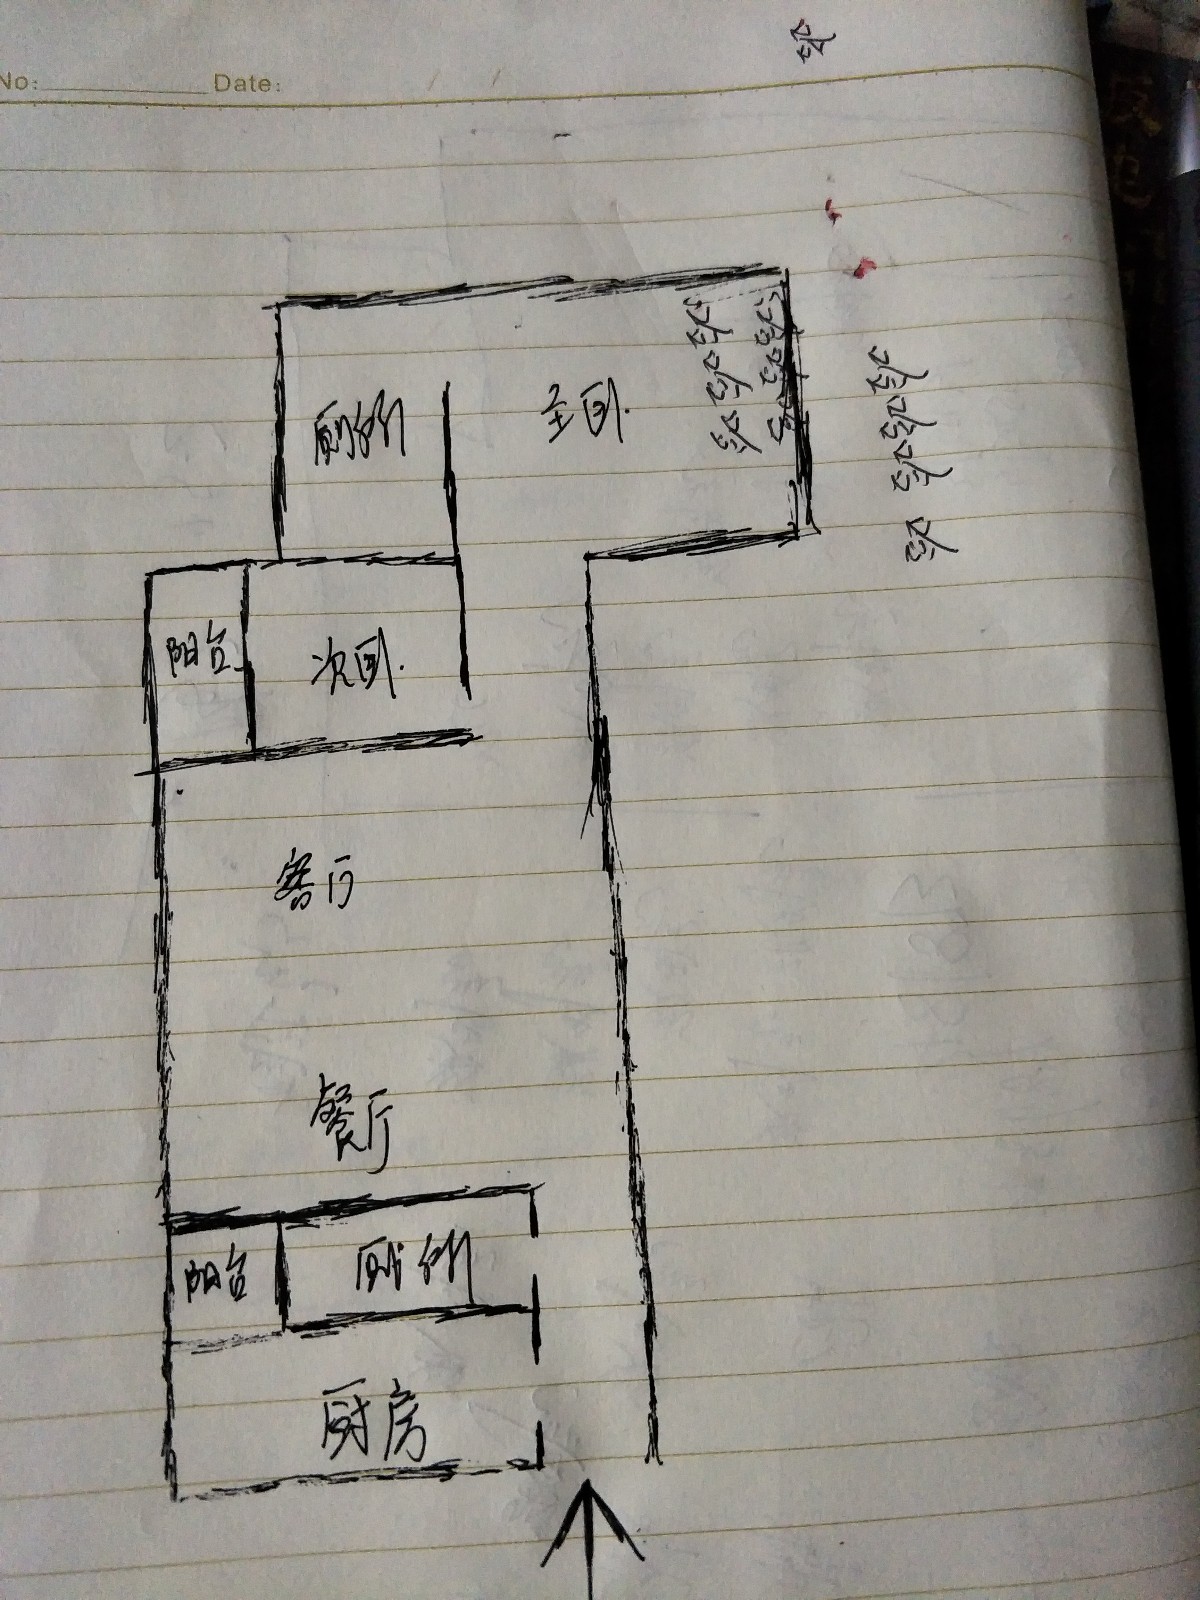 No:
Date:
厕所
主卧
阳台
次卧
客厅
餐厅
阳台
厕所
厨房